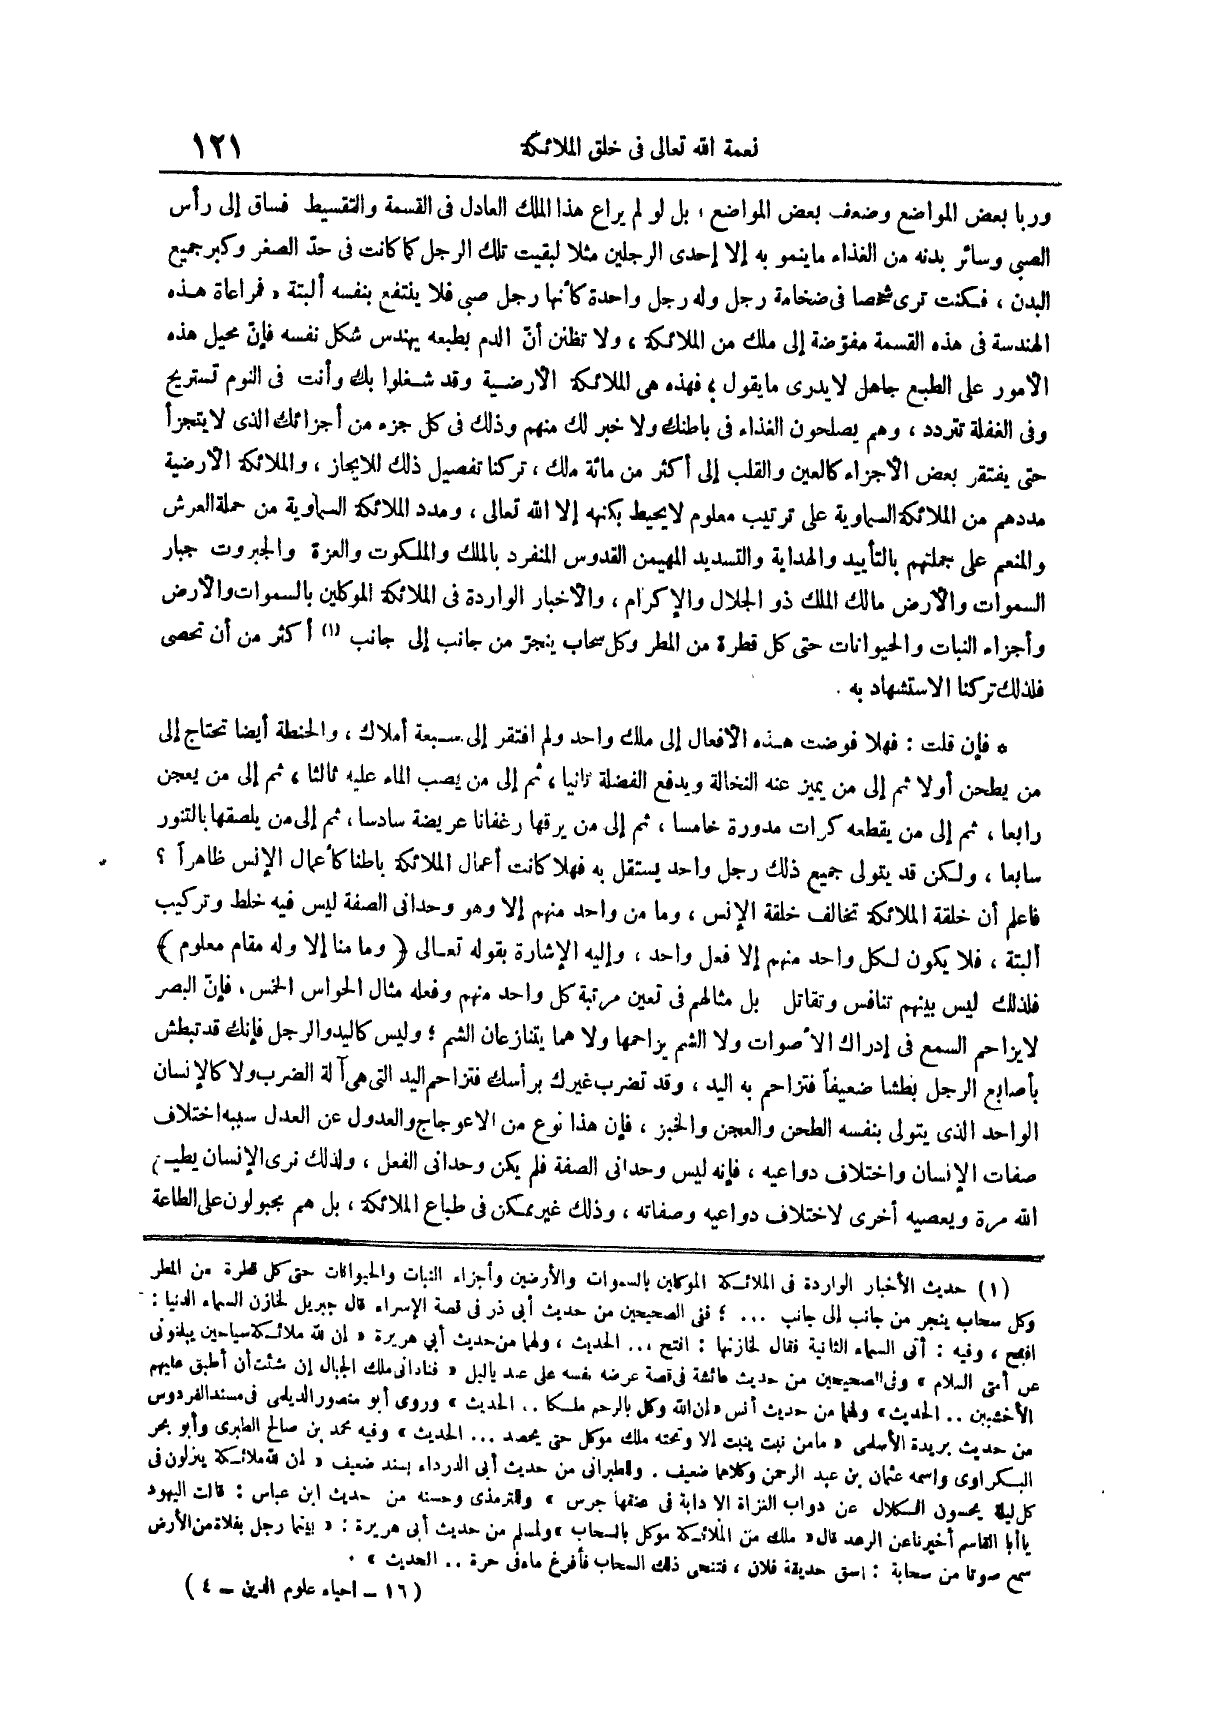 نعمة الله تعالى فى خلق الملائكة
١٢١
وربا بعض المواضع وضعف بعض المواضع ، بل لو لم يراع هذا الملك العادل فى القسمة والتقسيط فساق إلى رأس
الصبى وسائر بدنه من الغذاء ماينمو به إلا إحدى الرجلين مثلا لبقيت تلك الرجل كما كانت فى حدّ الصغر وكبر جميع
البدن ، فكنت ترى شخصا فى ضخامة رجل وله رجل واحدة كأنها رجل صبى فلا ينتفع بنفسه ألبتة ، فمراعاة هذه
الهندسة فى هذه القسمة مفوّضة إلى ملك من الملائكة ، ولا تظنن أنّ الدم بطبعه يهندس شكل نفسه فإنّ محيل هذه
الأمور على الطبع جاهل لايدرى مايقول ؛ فهذه هى الملائكة الأرضية وقد شغلوا بك وأنت فى النوم تستريح
وفى الغفلة تتردد ، وهم يصلحون الغذاء فى باطنك ولا خبر لك منهم وذلك فى كل جزء من أجزائك الذى لايتجزأ
حتى يفتقر بعض الأجزاء كالعين والقلب إلى أكثر من مائة ملك ، تركنا تفصيل ذلك للايجاز ، والملائكة الأرضية
مددهم من الملائكة السماوية على ترتيب معلوم لايحيط بكنهه إلا الله تعالى ، ومدد الملائكة السماوية من حملة العرش
والمنعم على جملتهم بالتأييد والهداية والتسديد المهيمن القدوس المنفرد بالملك والملكوت والعزة والجبروت جبار
السموات والأرض مالك الملك ذو الجلال والإكرام ، والأخبار الواردة فى الملائكة الموكلين بالسموات والأرض
وأجزاء النبات والحيوانات حتى كل قطرة من المطر وكل سحاب ينجرّ من جانب إلى جانب (١) أكثر من أن تحصى
فلذلك تركنا الاستشهاد به .
* فإن قلت : فهلا فوضت هذه الأفعال إلى ملك واحد ولم افتقر إلى سبعة أملاك ، والحنطة أيضا تحتاج إلى
من يطحن أولا ثم إلى من يميز عنه النخالة ويدفع الفضلة ثانيا ، ثم إلى من يصب الماء عليه ثالثا ، ثم إلى من يعجن
رابعا ، ثم إلى من يقطعه كرات مدورة خامسا ، ثم إلى من يرقها رغفانا عريضة سادسا ، ثم إلى من يلصقها بالتنور
سابعا ، ولكن قد يتولى جميع ذلك رجل واحد يستقل به فهلا كانت أعمال الملائكة باطنا كأعمال الإنس ظاهراً ؟
فاعلم أن خلقة الملائكة تخالف خلقة الإنس ، وما من واحد منهم إلا وهو وحدانى الصفة ليس فيه خلط وتركيب
ألبتة ، فلا يكون لكل واحد منهم إلا فعل واحد ، وإليه الإشارة بقوله تعالى ﴿ وما منا إلا وله مقام معلوم ﴾
فلذلك ليس بينهم تنافس وتقاتل بل مثالهم فى تعين مرتبة كل واحد منهم وفعله مثال الحواس الخمس ، فإنّ البصر
لايزاحم السمع فى إدراك الأصوات ولا الشم يزاحمها ولا هما يتنازعان الشم ؛ وليس كاليد والرجل فإنك قد تبطش
بأصابع الرجل بطشا ضعيفاً فتزاحم به اليد ، وقد تضرب غيرك برأسك فتزاحم اليد التى هى آلة الضرب ولا كالإنسان
الواحد الذى يتولى بنفسه الطحن والعجن والخبز ، فإن هذا نوع من الاعوجاج والعدول عن العدل سببه اختلاف
صفات الإنسان واختلاف دواعيه ، فإنه ليس وحدانى الصفة فلم يكن وحدانى الفعل ، ولذلك نرى الإنسان يطيع
الله مرة ويعصيه أخرى لاختلاف دواعيه وصفاته ، وذلك غير ممكن فى طباع الملائكة ، بل هم مجبولون على الطاعة
(١) حديث الأخبار الواردة فى الملائكة الموكلين بالسموات والأرضين وأجزاء النبات والحيوانات حتى كل قطرة من المطر
وكل سحاب ينجر من جانب إلى جانب ... ؛ ففى الصحيحين من حديث أبى ذر فى قصة الإسراء قال جبريل لخازن السماء الدنيا :
افتح ، وفيه : أتى السماء الثانية فقال لخازنها : افتح ... الحديث ، ولهما من حديث أبي هريرة « إن لله ملائكة سياحين يبلغونى
عن أمتى السلام » وفى الصحيحين من حديث عائشة فى قصة عرضه نفسه على عبد ياليل « فنادانى ملك الجبال إن شئت أن أطبق عليهم
الأخشبين .. الحديث » ولهما من حديث أنس « إن الله وكل بالرحم ملكا .. الحديث » وروى أبو منصور الديلمى فى مسند الفردوس
من حديث بريدة الأسلمى « مامن نبت ينبت إلا وتحته ملك موكل حتى يحصد ... الحديث » وفيه محمد بن صالح الطبرى وأبو بحر
البكراوى واسمه عثمان بن عبد الرحمن وكلاهما ضعيف . والطبرانى من حديث أبى الدرداء بسند ضعيف « إن لله ملائكة ينزلون فى
كل ليلة يحسون الكلال عن دواب الغزاة إلا دابة فى عنقها جرس » والترمذى وحسنه من حديث ابن عباس : قالت اليهود
يا أبا القاسم أخبرنا عن الرعد قال « ملك من الملائكة موكل بالسحاب » ولمسلم من حديث أبى هريرة : « بينما رجل بفلاة من الأرض
سمع صوتا من سحابة : اسق حديقة فلان ، فتنحى ذلك السحاب فأفرغ ماءه فى حرة .. الحديث » .
( ١٦ - احياء علوم الدين - ٤ )